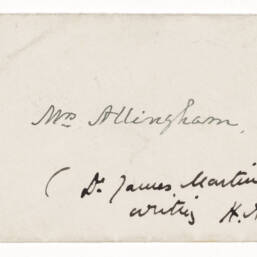 Mrs Allingham,
( Dr James Martin
writing H.